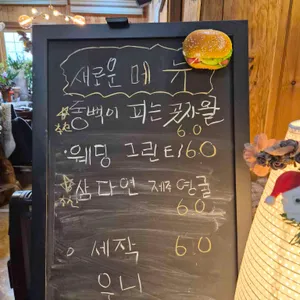 새로운 메뉴
동백이 피는 곶자왈
6.0
웨딩 그린티 6.0
삼다연 제주영귤
6.0
세작 6.0
우니